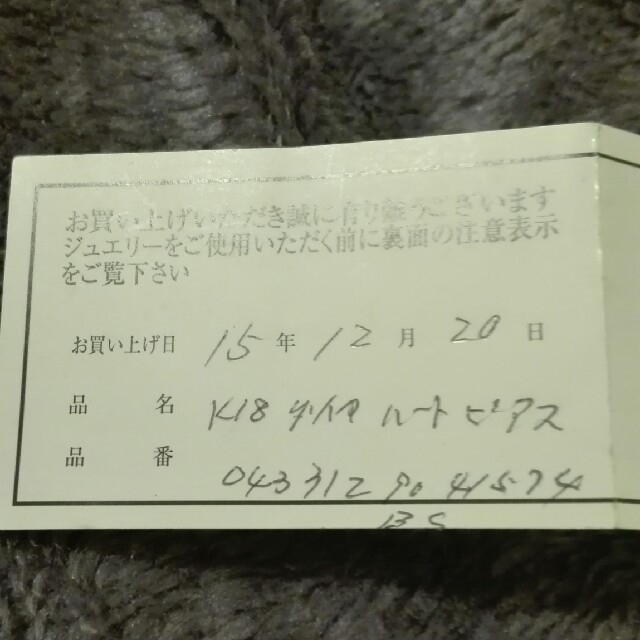 お買い上げいただき誠に有り難うございます
ジュエリーをご使用いただく前に裏面の注意表示
をご覧下さい
お買い上げ日 15年 12月 20日
品名 K18 ダイヤ ハート ピアス
品番 043312 90 41574